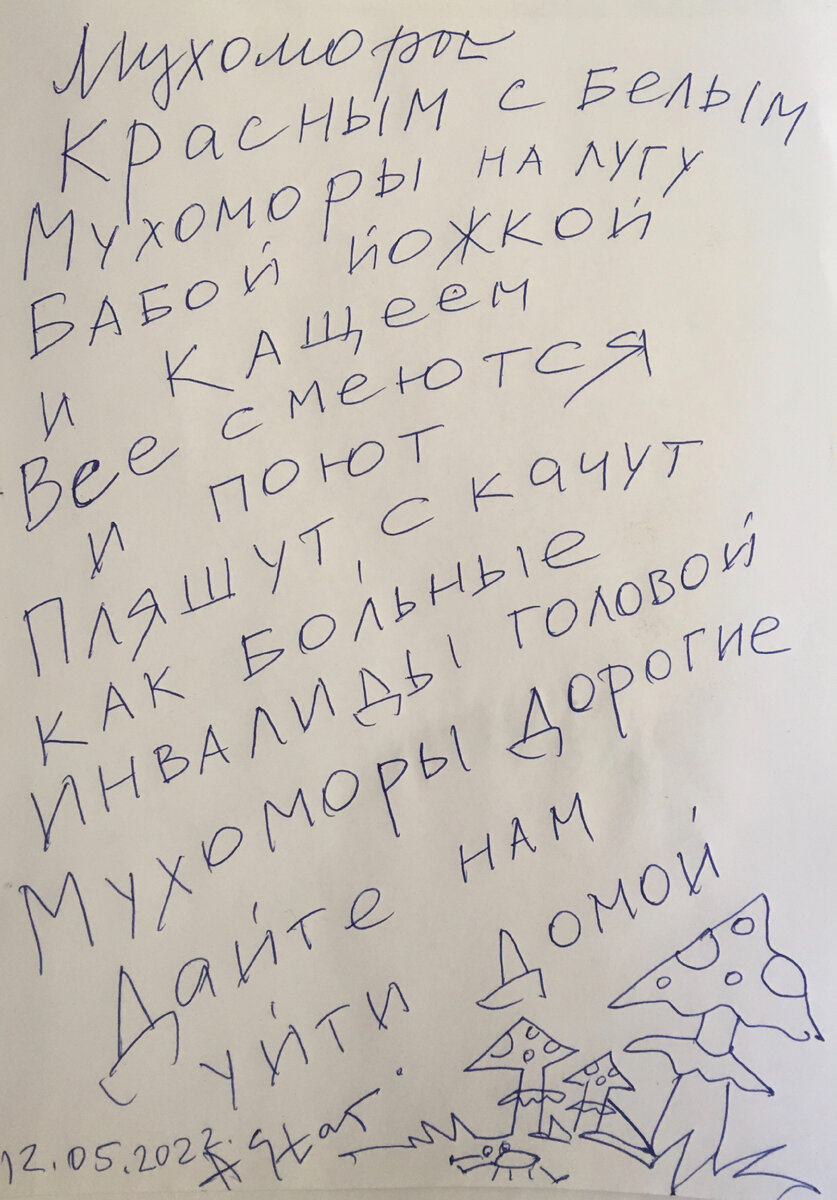 Мухоморы
Красным с белым
Мухоморы на лугу
Бабой йожкой
и Кащеем
Все смеются
и поют
Пляшут, скачут
как больные
инвалиды головой
Мухоморы дорогие
Дайте нам
уйти домой
12.05.2022.